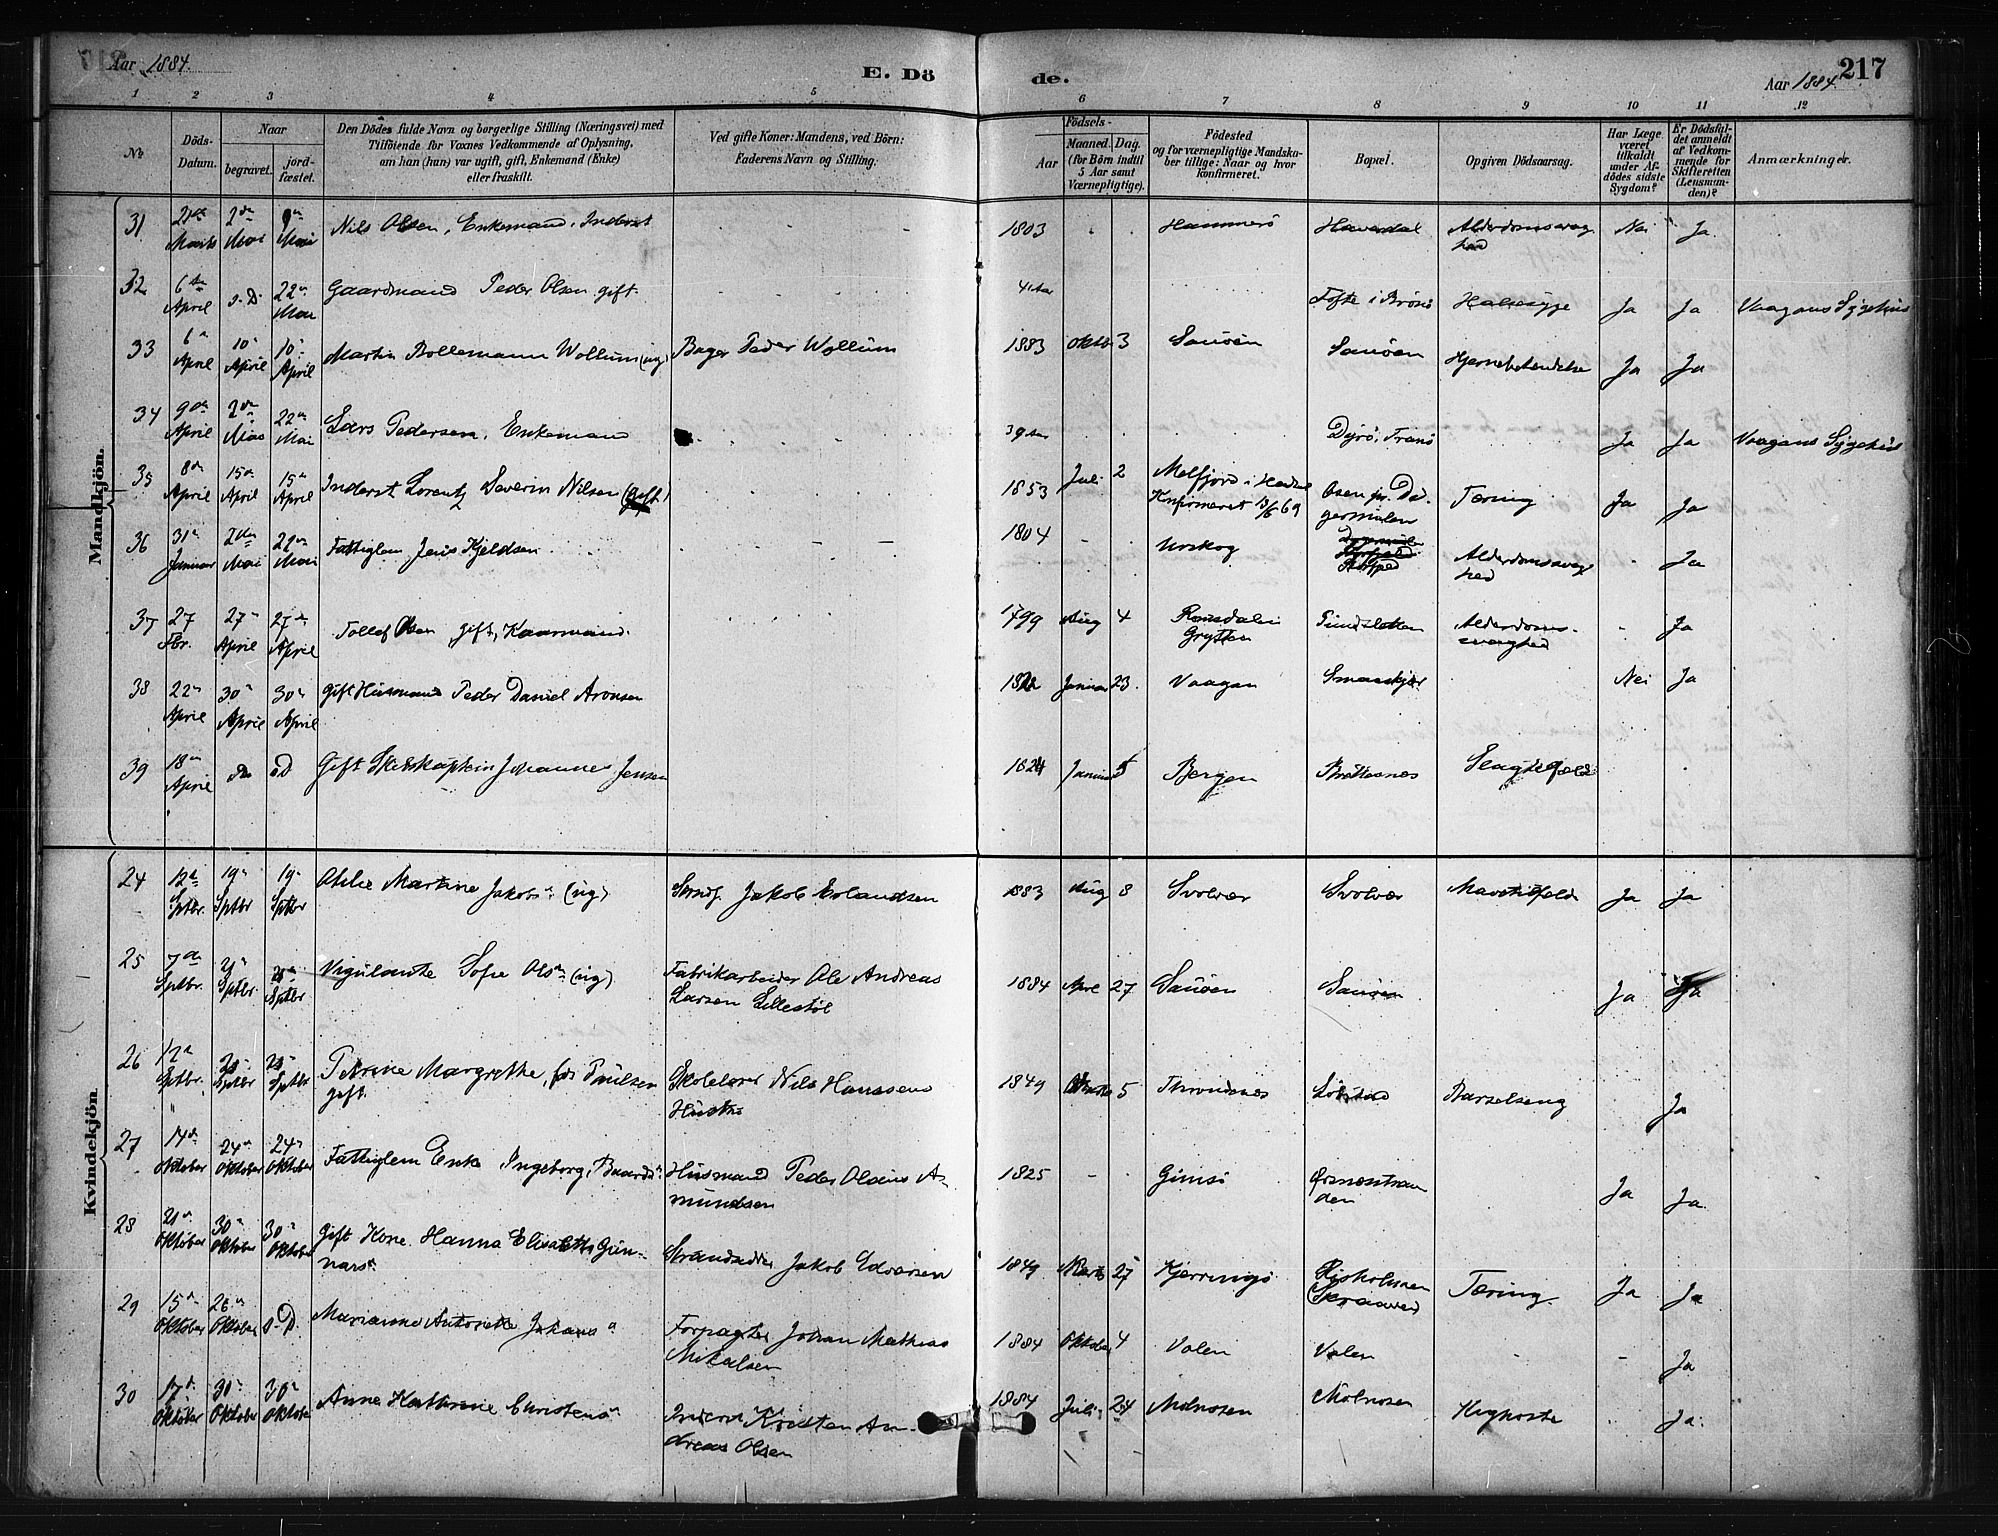 Aar 1884.
E. Dö
de.
Aar 1884.
217
1 2 3 4 5 6 7 8 9 10 11 12
No
Döds-
Datum.
Naar
begravet.
jord-
fæstet.
Den Dödes fulde Navn og borgerlige Stilling (Næringsvei) med
Tilföiende for Voxnes Vedkommende af Oplysning,
om han (hun) var ugift, gift, Enkemand (Enke)
eller fraskilt.
Ved gifte Koner: Mandens, ved Börn:
Faderens Navn og Stilling.
Födsels-
Aar
Maaned. Dag.
(for Börn indtil
5 Aar samt
Værnepligtige).
Födested
og for værnepligtige Mandska-
ber tillige: Naar og hvor
konfirmeret.
Bopæl.
Opgiven Dödsaarsag.
Har Læge
været
tilkaldt
under Af-
dödes sidste
Sygdom?
Er Dödsfal-
det anmeldt
af Vedkom-
mende for
Skifteretten
(Lensman-
den)?
Anmærkninger.
Mandkjön.
31 21de Marts 2den Mai 9n Mai Nils Olsen, Enkemand, Inderst 1803 Hammerö Alderdomssvag
hed Nei Ja
32 6te April s. D. 22n Mai Gaardmand Peder Olsen gift. 41 Aar Tofte i Brönö Halssyge Ja Ja Vaagans Sygehus
33 6n April 10n April 10n April Martin Wollum (ug) Bager Peder Wollum 1883 Oktb 3 Sauöen Sauöen Hjernebetændelse Ja Ja
34 9de April 2den Mai 22n Mai Lars Pedersen, Enkemand 39 Aar Dyrö, Tranö Ja Ja Vaagans Sygehus
35 8de April 15de April 15n April Inderst Lorentz Severin Nilsen (gift) 1853 Juli 2 Melfjord i
Konfirmeret 13/6 69 Osen pr. Di-
germulen Tæring Ja Ja
36 31n Januar 2den Mai 22n Mai Fattiglem Jens Kjeldsen 1804 - Alderdomssvag
hed - Ja
37 27 Fbr. 27n April 27n April Tollef Olsen gift, Kaarmand. 1799 Aug 4 Romsdalen
Grytten Alderdoms-
svaghed - Ja
38 22n April 30n April 30n April gift Husmand Peder Daniel Aronsen Januar 23. Vaagan Nei Ja
39 18n April do sD Gift Skibskaptein Johannes Jensen 1824 Januar 5 Bergen Brettesnes
Kvindekjön.
24 12te Sptbr. 19n Sptbr 19n Sptbr Otilie Martine Jakobsn (ug) Strds. Jakob Erlandsen 1883 Aug 8 Svolvær Svolvær Ja Ja
25 7de Sptbr. 21n Sptbr Sptbr Sofie Olsn (ug) Fabrikarbeider Ole Andreas
Larsen Lillestöl 1884 Apr 27 Sauöen Sauöen Ja Ja
26 12n Sptbr. Sptbr Sptbr Petrine Margrethe, föd Paulsen
gift. Skolelærer Nils Hanssens
Hustru 1849 5 Throndenes Barselseng Ja
27 14de Oktober 24n Oktober 24n Oktober Fattiglem Enke Ingeborg Baardsn Husmand Peder Olaus A-
mundsen 1825 - - Gimsö Ja Ja
28 21de Oktober 30n Oktober 30n Oktober gift Kone Hanna Elisabeth Gun-
narsn Strandsidder Jakob Edvarsen 1849 Marts 25 Kjerringö Risholmen
(Skraaven) Tæring. Ja Ja
29 15n Oktober 26n Oktober s. D. Marianne Antonette Johansn Forpagter Johan Mathias
Mikalsen 1884 Oktober 4 Volen Volen - - Ja
30 17de Oktober 30n Oktober 30n Oktober Anne Kathrine Christensn Inderst Kristen An-
dreas Olsen 1884 Juli 24 Molnosen Molnosen Kighoste - Ja.